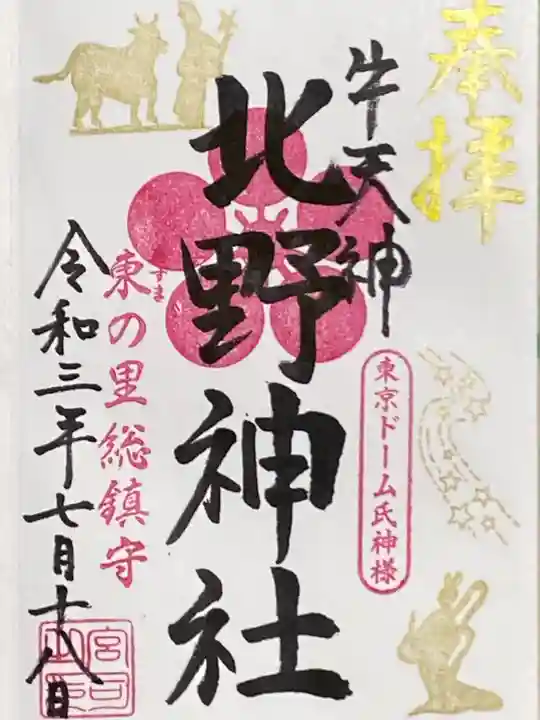 奉拝
牛天神
東京ドーム氏神様
北野神社
東の里総鎮守
ずま
令和三年七月十八日